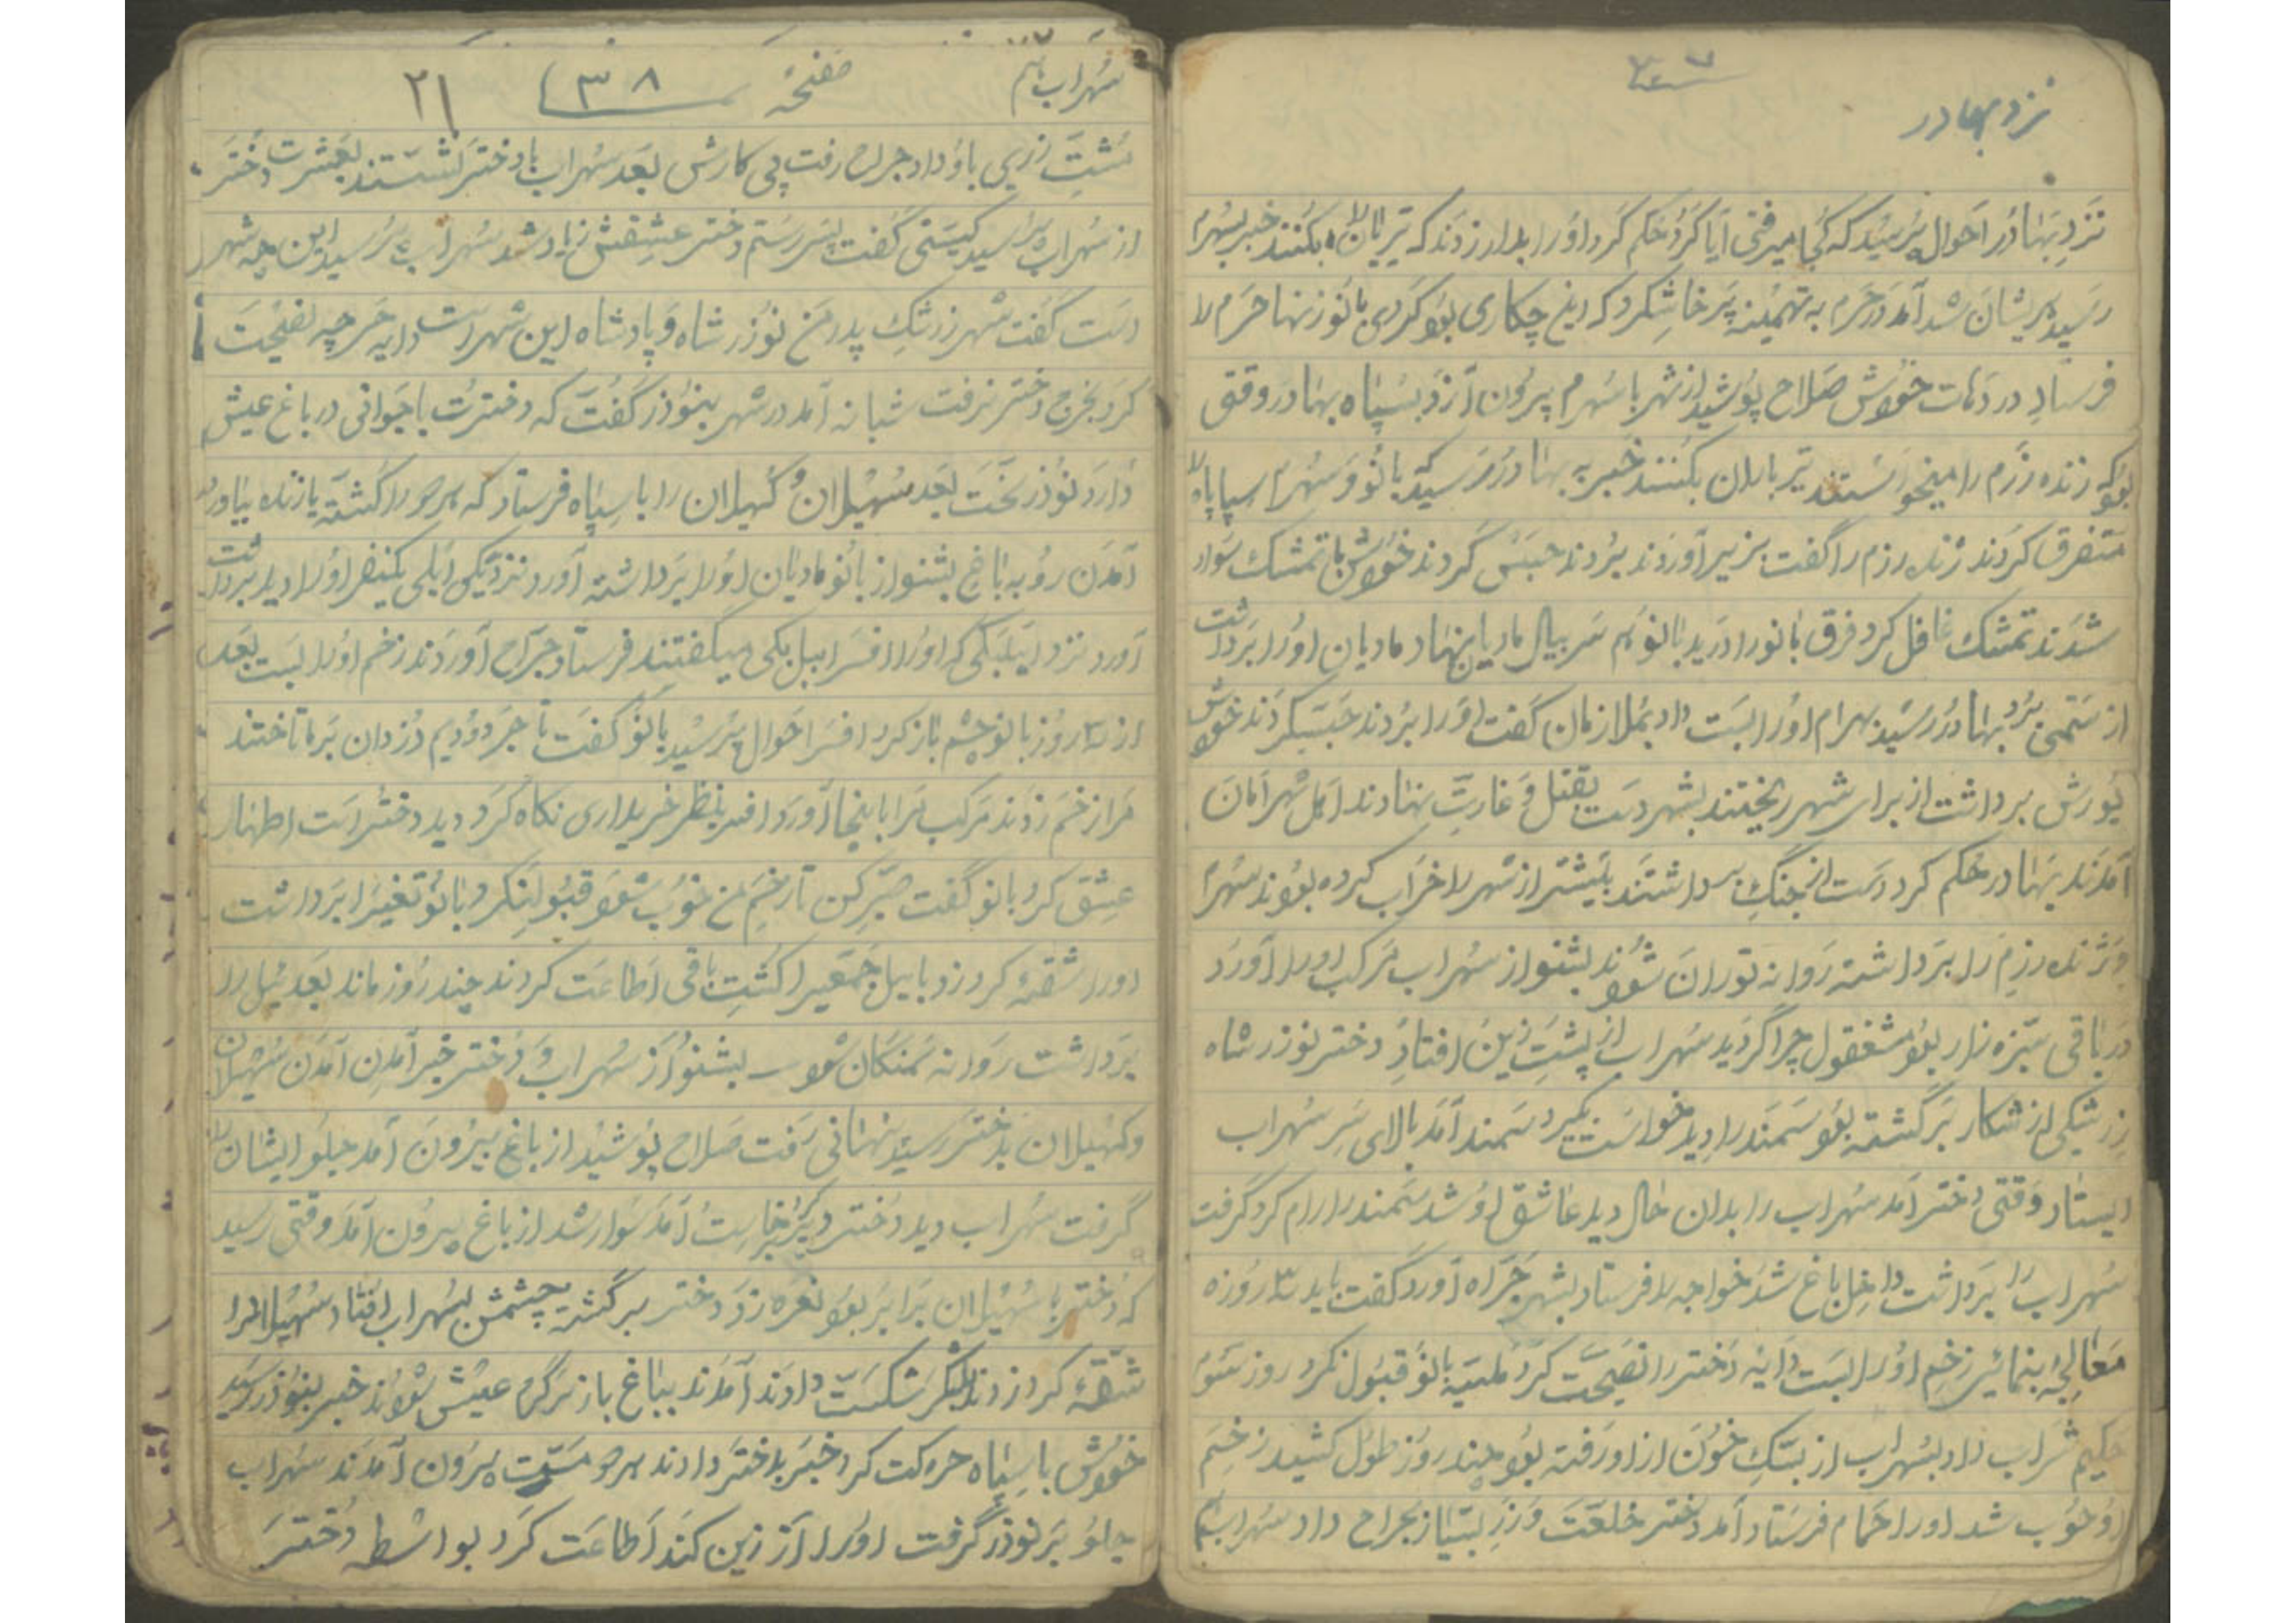 نزد بهادر
نزدِ بهادر احوال پرسید که کجا میرفتی آیا کرد حکم کرد اورا بدار زدند که تیرباران بکنند خبر بسهرام
رسید پریشان شد آمد در حرم به تهمینه پرخاش کرد که این چکاری بود کردی بانو ز تنها حرم را
فرستاد در دهات خودش صلاح پوشید از شهر با سهرام بیرون آزد بسپاه بهادر وقتی
بود که زنده رزم را میخواستند تیر باران بکنند خبر به بهادر رسید که بانو و سهرام سپاه را
متفرق کردند زنده رزم را گفت بزیر آوردند بردند حبس کردند خودش با تمشک سوار
شدند تمشک غافل کرد فرق بانو را درید بانو هم سر بیال مادیان نهاد مادیان اورا برداشت
از سمتی برد بهادر رسید بهرام اورا بست داد بملازمان گفت اورا بردند حبس کردند خودش
یورش برداشت از برای شهر ریختند بشهر دست بقتل و غارت نهادند اهل شهر امان
آمدند بهادر حکم کرد دست از جنگ برداشتند بیشتر از شهر را خراب کرده بودند سهرام
و زنده رزم را برداشته روانه توران شوند بشنو از سهراب مرکب اورا آورد
در باقی سبزه زار بود مشغول چرا گردید سهراب از پشت زین افتاد دختر نوذر شاه
زرشکی از شکار برگشته بود سمند را دید خواست بگیرد سمند آمد بالای سر سهراب
ایستاد وقتی دختر آمد سهراب را بدان حال دید عاشق او شد سمند را رام کرد گرفت
سهراب را برداشت داخل باغ شد خواجه را فرستاد بشهر جراه آورد گفت باید ۳ روزه
معالجه بنمائی زخم اورا بست دایه دختر را نصیحت کرد ملیّه بانو قبول نکرد روز سوم
حکیم شراب داد بسهراب از بسکه خون از او رفته بود چند روز طول کشید زخم
او خوب شد اورا حمام فرستاد آمد دختر خلعت و زر بسیار بجراح داد سهراب هم
سهراب هم صفحهٔ ۳۸ ۲۱
مشت زری باو داد جراح رفت پی کارش بعد سهراب با دختر نشستند بعشرت دختر
از سهراب پرسید کیستی گفت پسر رستم دختر عشقش زیاد شد سهراب پرسید این چه شهر
است گفت شهر زرشک پدر من نوذر شاه و پادشاه این شهر است دایه هر چه نصیحت
کرد بخرج دختر نرفت شبانه آمد در شهر بنوذر گفت که دخترت با جوانی در باغ عیش
دارد نوذر بخت بعد سهیلان و کهیلان را با سپاه فرستاد که هر دو را کشته یا زنده بیاورد
آمدن رو به باغ بشنو از بانو مادیان اورا برداشته آورد نزدیکی ایلی یکنفر اورا دید برداشت
آورد نزد ایلبگی که اورا افسر ایل بگی میگفتند فرستاد جراح آوردند زخم اورا بست بعد
از ۳ روز بانو چشم باز کرد افسر احوال پرسید بانو گفت تاجر بودیم دزدان بر ما تاختند
مرا زخم زدند مرکب مرا باینجا آورد افسر بنظر خریداری نگاه کرد دید دختر است اظهار
عشق کرد بانو گفت صبر کن تا زخم من خوب شود قبول نکرد بانو تغیر را برداشت
اورا شقه کرد زد با ایل جمعی را کشت باقی اطاعت کردند چند روز ماند بعد ایل را
برداشت روانه سمنگان شود - بشنو از سهراب و دختر خبر آمدن آمدن سهیلان
و کهیلان بدختر رسید پنهانی رفت صلاح پوشید از باغ بیرون آمد جلو ایشان را
گرفت سهراب دید دختر دیر برخاست آمد سوار شد از باغ بیرون آمد وقتی رسید
که دختر با سهیلان برابر بود نعره زد دختر برگشته چشمش بسهراب افتاد سهیلان اورا
شقه کرد زدند لشکر شکست دادند آمدند بباغ باز سرگرم عیش شوند خبر بنوذر رسید
خودش با سپاه حرکت کرد خبر بدختر دادند هر دو مست بیرون آمدند سهراب
جلو بر نوذر گرفت اورا از زین کند اطاعت کرد بواسطه دختر